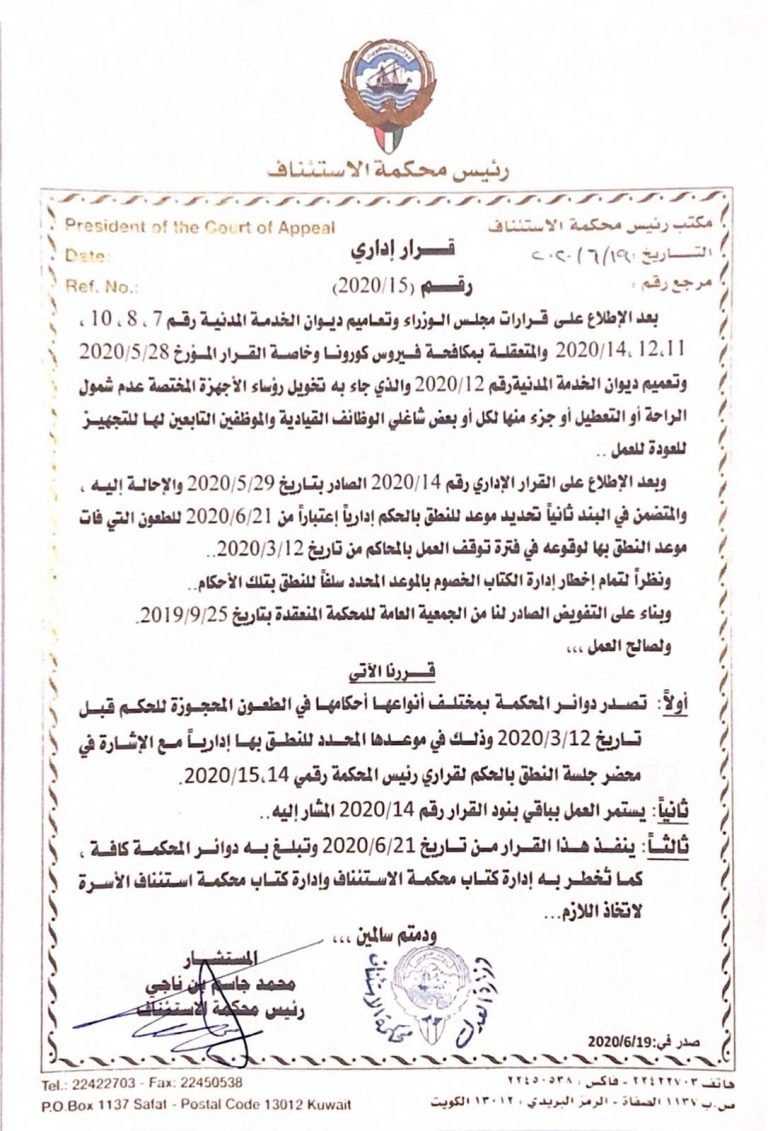 دولة الكويت
رئيس محكمة الاستئناف
President of the Court of Appeal
مكتب رئيس محكمة الاستئناف
Date:
قـــرار إداري
التـــاريخ : ٢٠٢٠/٦/١٩
Ref. No.:
رقـــم (2020/15)
مرجع رقم :
بعد الإطلاع على قرارات مجلس الوزراء وتعاميم ديوان الخدمة المدنية رقم 7 ، 8 ، 10 ،
2020/14 ،12 ،11 والمتعقلة بمكافحة فيروس كورونا وخاصة القرار المؤرخ 2020/5/28
وتعميم ديوان الخدمة المدنيةرقم 2020/12 والذي جاء به تخويل رؤساء الأجهزة المختصة عدم شمول
الراحة أو التعطيل أو جزء منها لكل أو بعض شاغلي الوظائف القيادية والموظفين التابعين لها للتجهيز
للعودة للعمل ..
وبعد الإطلاع على القرار الإداري رقم 2020/14 الصادر بتاريخ 2020/5/29 والإحالة إليه ،
والمتضمن في البند ثانياً تحديد موعد للنطق بالحكم إدارياً إعتباراً من 2020/6/21 للطعون التي فات
موعد النطق بها لوقوعه في فترة توقف العمل بالمحاكم من تاريخ 2020/3/12..
ونظراً لتمام إخطار إدارة الكتاب الخصوم بالموعد المحدد سلفاً للنطق بتلك الأحكام..
وبناء على التفويض الصادر لنا من الجمعية العامة للمحكمة المنعقدة بتاريخ 2019/9/25.
ولصالح العمل ،،،
قـــررنا الآتي
أولاً: تصدر دوائر المحكمة بمختلف أنواعها أحكامها في الطعون المحجوزة للحكم قبل
تاريخ 2020/3/12 وذلك في موعدها المحدد للنطق بها إدارياً مع الإشارة في
محضر جلسة النطق بالحكم لقراري رئيس المحكمة رقمي 14،2020/15.
ثانياً: يستمر العمل بباقي بنود القرار رقم 2020/14 المشار إليه..
ثالثاً: ينفذ هذا القرار من تاريخ 2020/6/21 وتبلغ به دوائر المحكمة كافة ،
كما تُخطر به إدارة كتاب محكمة الاستئناف وإدارة كتاب محكمة استئناف الأسرة
لاتخاذ اللازم...
ودمتم سالمين ،،،
المستشـــار
محمد جاسم بن ناجي
رئيس محكمة الاستئناف
وزارة العدل
محكمة الاستئناف
صدر في:2020/6/19
Tel.: 22422703 - Fax: 22450538
هاتف ٢٢٤٢٢٧٠٣ - فاكس : ٢٢٤٥٠٥٣٨
P.O.Box 1137 Safat - Postal Code 13012 Kuwait
ص.ب ١١٣٧ الصفاة - الرمز البريدي : ١٣٠١٢ الكويت